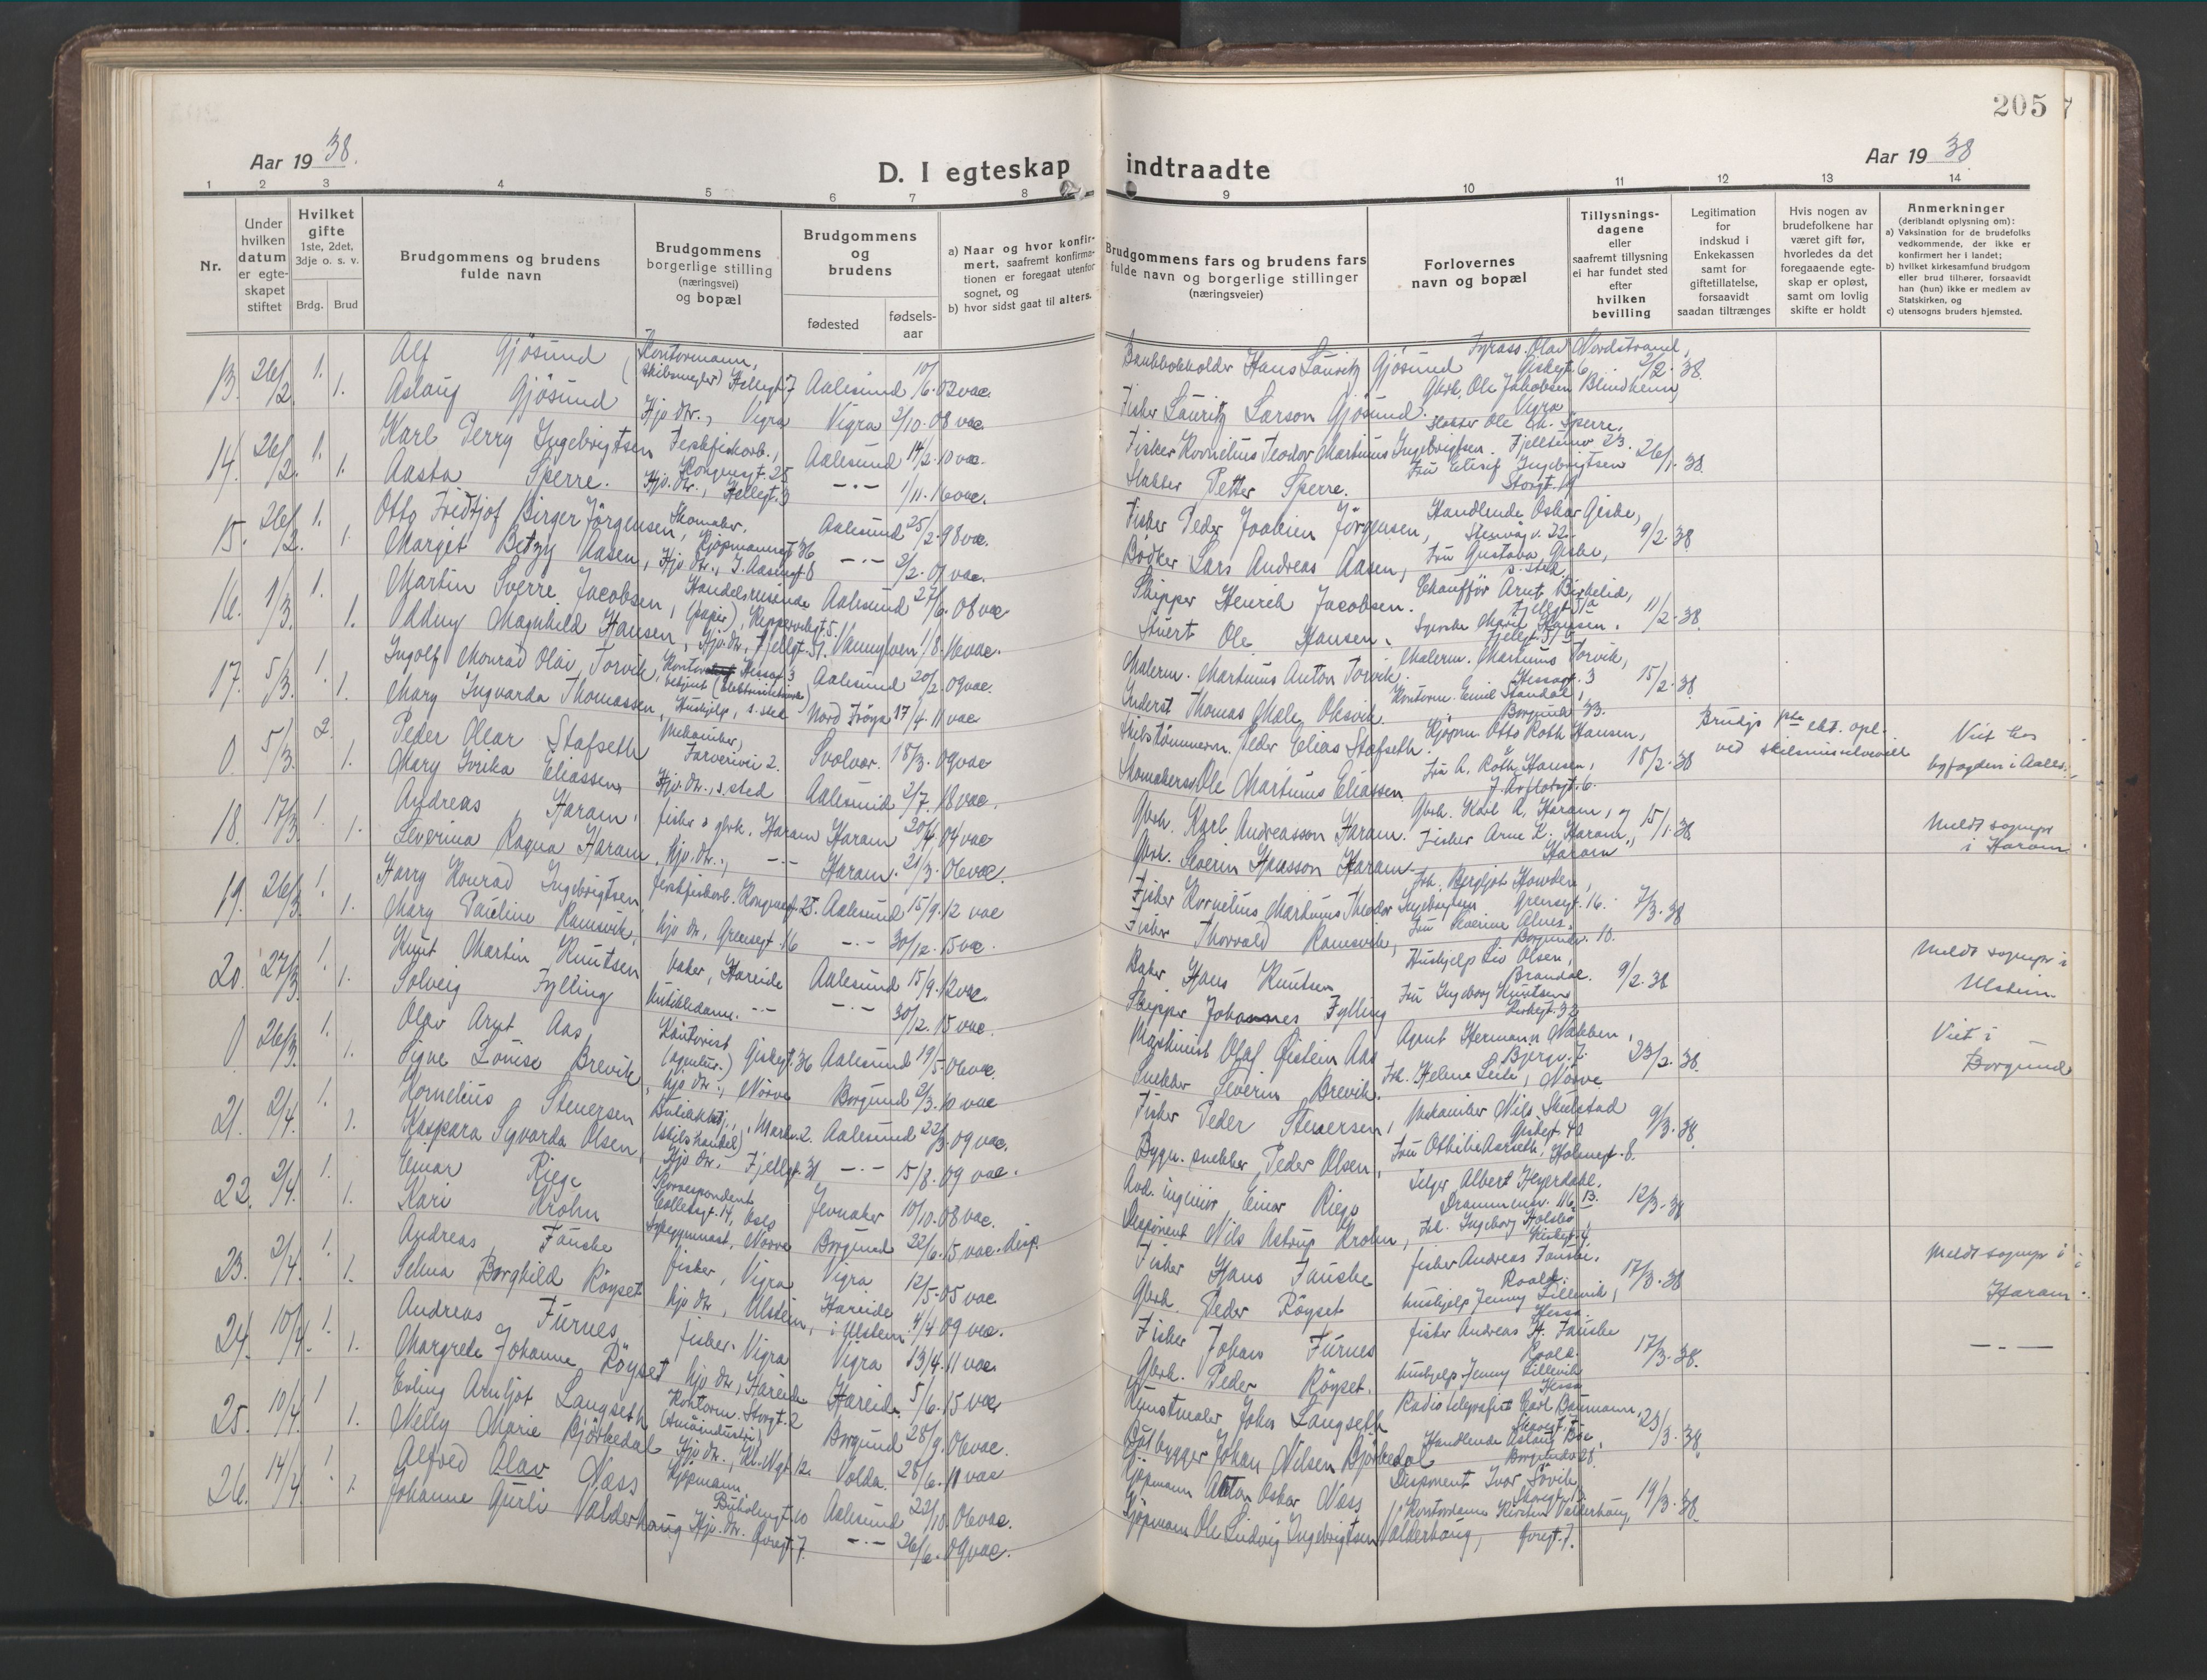 205
Aar 19 38.
D. I egteskap indtraadte
Aar 19 38
1 2 3 4 5 6 7 8 9 10 11 12 13 14
Nr.
Under hvilken datum er egteskapet stiftet
Hvilket gifte 1ste, 2det, 3dje o. s. v.
Brdg. Brud
Brudgommens og brudens fulde navn
Brudgommens borgerlige stilling (næringsvei) og bopæl
Brudgommens og brudens
fødested
fødsels-aar
a) Naar og hvor konfirmert, saafremt konfirmationen er foregaat utenfor sognet, og
b) hvor sidst gaat til alters.
Brudgommens fars og brudens fars fulde navn og borgerlige stillinger (næringsveier)
Forlovernes navn og bopæl
Tillysningsdagene eller saafremt tillysning ei har fundet sted efter hvilken bevilling
Legitimation for indskud i Enkekassen samt for giftetillatelse, forsaavidt saadan tiltrænges
Hvis nogen av brudefolkene har været gift før, hvorledes da det foregaaende egteskap er opløst, samt om lovlig skifte er holdt
Anmerkninger (deriblandt oplysning om):
a) Vaksination for de brudefolks vedkommende, der ikke er konfirmert her i landet;
b) hvilket kirkesamfund brudgom eller brud tilhører, forsaavidt han (hun) ikke er medlem av Statskirken, og
c) utensogns bruders hjemsted.
13. 26/2. 1. Alf Gjøsund Kontormann, (skibsmegler) Hellegt. 7 Aalesund 10/6. 02 vac. Hans Lauritz Gjøsund Olav Nordstrand, Giskegt. 6. 2/2. 38.
1. Aslaug Gjøsund Hjv. dtr., Vigra Vigra 2/10. 08 vac. Fisker Lauritz Larson Gjøsund. Gbrk. Ole Jakobsen Blindheim, Vigra
14. 26/2. 1. Karl Perry Ingebrigtsen Ferskfiskarb., Kongensgt. 25 Aalesund 14/2. 10 vac. Fisker Kornelius Teodor Martinus Ingebrigtsen. Ole Sperre, 23. 26/1. 38.
1. Aasta Sperre. Hjv. dtr., Hellegt. 3 -"- 1/11. 16 vac. Petter Sperre. Fru Ingebrigtsen Storgt.
15. 26/2. 1. Otto Fridtjof Birger Jörgensen, Skomaker, Kjöpmannsgt. 36 Aalesund 25/2. 98 vac. Fisker Peder Jörgensen, Handlende Oskar Giske, Stenvåg v. 32. 9/2. 38
1. Margit Betzy Aasen, Hjv. dtr., I. Aasensgt. 6 -"- 2/2. 07 vac. Bödker Lars Andreas Aasen, Fru Gustava Giske, s. sted
16. 1/3. 1. Martin Sverre Jacobsen, Handelsreisende (papir), 5. Aalesund 27/6. 08 vac Skipper Henrik Jacobsen. Chauffør Arnt Birkelid, 11/2. 38.
1. Oddny Magnhild Hansen, Hjv. dtr, Fjellgt. 51. Vannylven 1/8. 16 vac. Stuert Ole Hansen. Marie Hansen.
17. 5/3. 1. Ingolf Monrad Olav Torvik, Hessagt. 3 Aalesund 20/2. 09 vac. Malerm. Martinus Anton Torvik. Malerm. Martinus Torvik, Hessagt. 3 15/2. 38.
1. Mary Ingvarda Thomassen, Hushjelp, s. sted Nord Fröya 17/4. 11 vac Inderst Thomas Oksvik. Kontorm. Emil Standal, Borgundv. 33.
0 5/3. 2. Peder Olear Stafseth Mekaniker, 2. Svolvær. 18/3. 09 vac Skibstømmerm. Peder Elias Stafseth. Kjøpm. Otto Roth Hansen, 18/2. 38 Brudgs
1. Mary Eliassen, Hjv. dtr., s. sted Aalesund 2/7. 18 vac. Ole Martinus Eliassen. Fru A. Roth Hansen, 6. Viet hos byfogden i Aales.
18. 17/3. 1. Andreas Haram, fisker & gbrk. Haram Haram 04 vac Gbrk. Karl Andreasson Haram. Gbrk. Karl A. Haram, og 15/1. 38 Meldt sognepr i Haram
1. Severina Ragna Haram, hjv. dtr., -"- Haram. 21/3. 06 vac. Gbrk. Severin Hansson Haram. Fisker Arne K. Haram, Haram
19. 26/3. 1. Harry Konrad Ingebrigtsen, ferskfiskarb. Kongensgt. 25. Aalesund 15/9. 12 vac Fisker Kornelius Martinus Theodor Ingebrigtsen Frk. Bergljot Howden, Grensegt. 16. 7/3. 38
1. Mary Pauline Ramsvik, hjv. dtr, Grensegt. 16 -"- 30/12. 15 vac. Fisker Thorvald Ramsvik, Fru Alnes, Borgundv. 10.
20. 27/3. 1. Knut Martin Knutsen baker, Hareide Aalesund 15/9. 12 vac. Baker Hans Knutsen Hushjelp Liv Olsen, Brandal. 9/2. 38 Meldt sognepr i Ulstein.
1. Solveig Fylling butikkdame. -"- -"- 30/12. 15 vac. Skipper Johannes Fylling Fru Ingeborg Knutsen
0 26/3. 1. Olav Arnt Aas Kontorist (agentur.) Giskegt. 36 Aalesund 19/5. 06 vac. Maskinist Olaf Øistein Aas Agent Hermann Nakken, Bjergv. 7. 23/2. 38. Viet i Borgund
1. Signe Louise Brevik, hjv. dtr., Nørve Borgund 2/3. 10 vac Snekker Severin Brevik. Frk. Helene Seile, Nørve
21. 2/4. 1. Kornelius Stenersen Butikkbetj., (skibshandel), 2. Aalesund 22/3. 09 vac. Fisker Peder Stenersen, Mekaniker Nils Skulstad Giskegt. 40 9/3. 38.
1. Kaspara Syvarda Olsen, Hjv. dtr. Fjellgt. 31 -"- 15/8. 09 vac. Bygn. snekker Peder Olsen, Fru Othilie Aarseth, Holmegt. 8.
22. 2/4. 1. Einar Riege Korrespondent Colletsgt. 14, Oslo Jevnaker 10/10. 08 vac. Avd. ingeniør Einar Riege Selger Albert Heyerdahl, Drammensv. 12/3. 38
1. Kari Krohn Sykegymnast, Nørve Borgund 22/6. 15 vac. disp. Disponent Nils Astrup Krohn, Frk. Ingeborg Holsbø,
23. 2/4. 1. Andreas Fauske fisker, Vigra Vigra 12/5. 05 vac Fisker Hans Fauske fisker Andreas Fauske, Roald. 17/3. 38 Meldt sognepr i Haram
1. Selma Borghild Röyset hjv dtr, Ulstein, Hareide i Ulstein 4/4 09 vac. Gbrk. Peder Röyset hushjelp Jenny Lillevik, Hessa.
24. 10/4. 1. Andreas Furnes fisker. Vigra Vigra 13/4. 11 vac Fisker Johan Furnes fisker Andreas H. Fauske Roald. 17/3. 38. -"-
1. Margrete Johanne Röyset hjv dtr, Hareide Hareide 5/6. 15 vac Gbrk. Peder Röyset. hushjelp Jenny Lillevik Hessa
25. 10/4. 1 Erling Arnljot Langseth Kontorm. Storgt. 2 (småindustri) Borgund 28/9. 06 vac. Kunstmaler John Langseth Radiotelegrafist Carl Baumann, 23/3. 38.
1. Nelly Marie Björkedal Hjv. dtr., Kl. Ngt. 12. Volda. 28/6. 11 vac Båtbygger Johan Nilsen Björkedal Handlende Aslaug Bøe, Borgundv 28.
26. 14/4. 1 Alfred Olav Næss Kjöpmann 10 Aalesund 22/10. 06 vac. Kjöpmann Anton Oskar Næss Disponent Ivar Søvik, 19/3. 38.
1. Johanne Gurli Valderhaug Hjv. dtr. Øvregt. 7. -"- 26/6. 09 vac. Kjöpmann Ole Ludvig Ingebrigtsen Valderhaug, Kontordame Kirsten Valderhaug, Øvregt. 7.